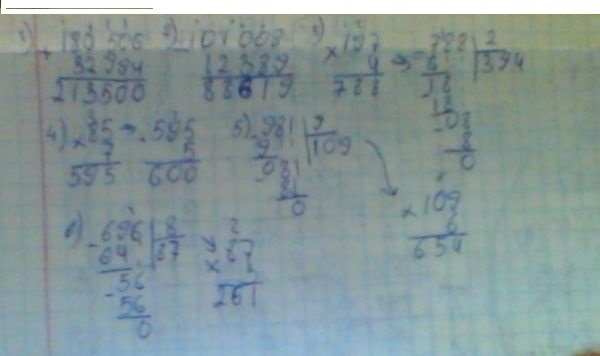 1) + 180506
32994
213500
2) - 101008
12389
88619
3) × 197
4
788
→ - 788 | 2
6 | 394
18
18
- 08
8
0
4) × 85
7
595
→ 595
5
600
5) - 981 | 9
9 | 109
- 081
81
0
× 109
6
654
6) - 696 | 8
64 | 87
- 56
56
0
× 87
3
261